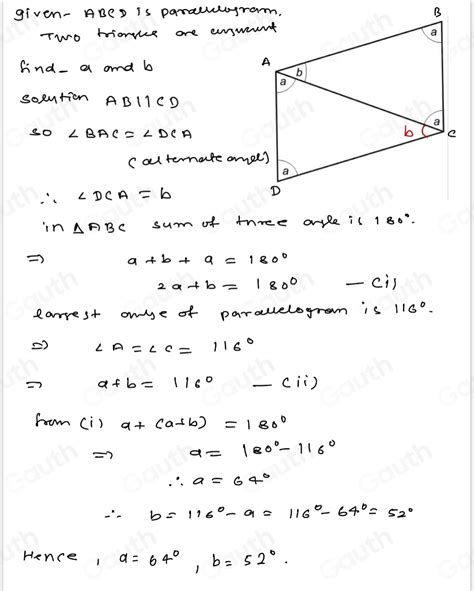 given- ABCD is parallelogram.
Two triangle are congruent
find- a and b
solution AB11CD
so ∠BAC = ∠DCA
(alternate angles)
∴ ∠DCA = b
in △ABC sum of three angle is 180°.
⇒ a+b+a = 180°
2a+b = 180° — (i)
largest angle of parallelogram is 116°.
⇒ ∠A = ∠C = 116°
⇒ a+b = 116° — (ii)
from (i) a+(a+b) = 180°
⇒ a = 180°-116°
∴ a = 64°
∴ b = 116°-a = 116°-64° = 52°
Hence, a = 64°, b = 52°.
B
a
A
b
a
a
b
C
a
D
Gauth